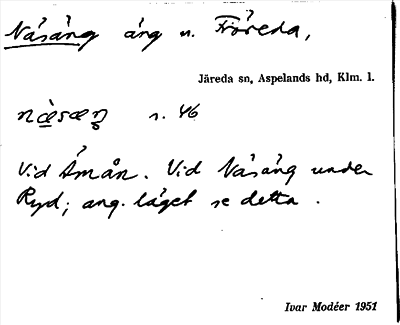 Näsäng äng u. Fröreda,
Järeda sn, Aspelands hd, Klm. l.
næ̀sæŋ s. 46
Vid Åmån. Vid Näsäng under
Ryd; ang. läget se detta.
Ivar Modéer 1951